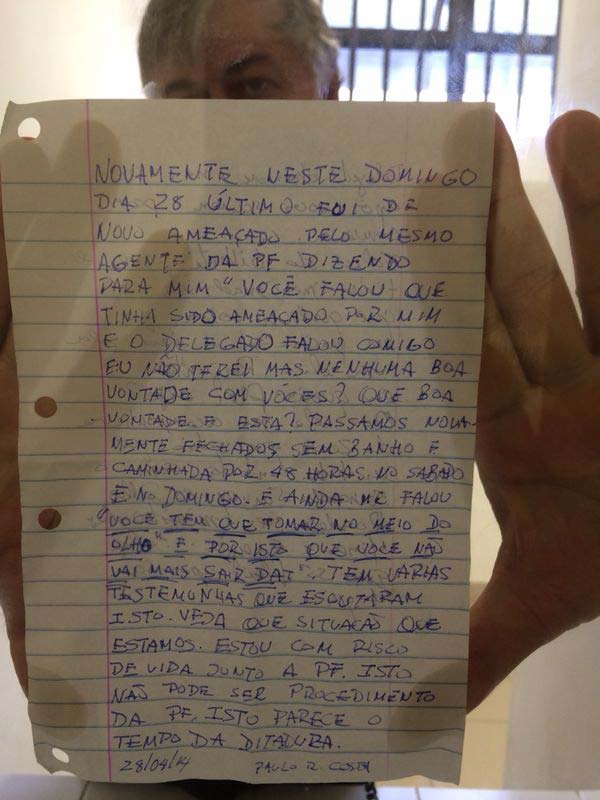 NOVAMENTE NESTE DOMINGO
DIA 28 ÚLTIMO FUI DE
NOVO AMEAÇADO PELO MESMO
AGENTE DA PF DIZENDO
PARA MIM "VOCÊ FALOU QUE
TINHA SIDO AMEAÇADO POR MIM
E O DELEGADO FALOU COMIGO
EU NÃO TEREI MAS NENHUMA BOA
VONTADE COM VOCES? QUE BOA
VONTADE E ESTA? PASSAMOS NOVA-
MENTE FECHADOS SEM BANHO E
CAMINHADA POR 48 HORAS NO SABADO
E N DOMINGO. E AINDA ME FALOU
"VOCE TEM QUE TOMAR NO MEIO DO
OLHO" E POR ISTO QUE VOCE NÃO
VAI MAIS SAIR DAI". TEM VARIAS
TESTEMUNHAS QUE ESCUTARAM
ISTO. VEJA QUE SITUAÇÃO QUE
ESTAMOS. ESTOU COM RISCO
DE VIDA JUNTO A PF. ISTO
NÃO PODE SER PROCEDIMENTO
DA PF. ISTO PARECE O
TEMPO DA DITADURA.
28/04/14 PAULO R. COSTA